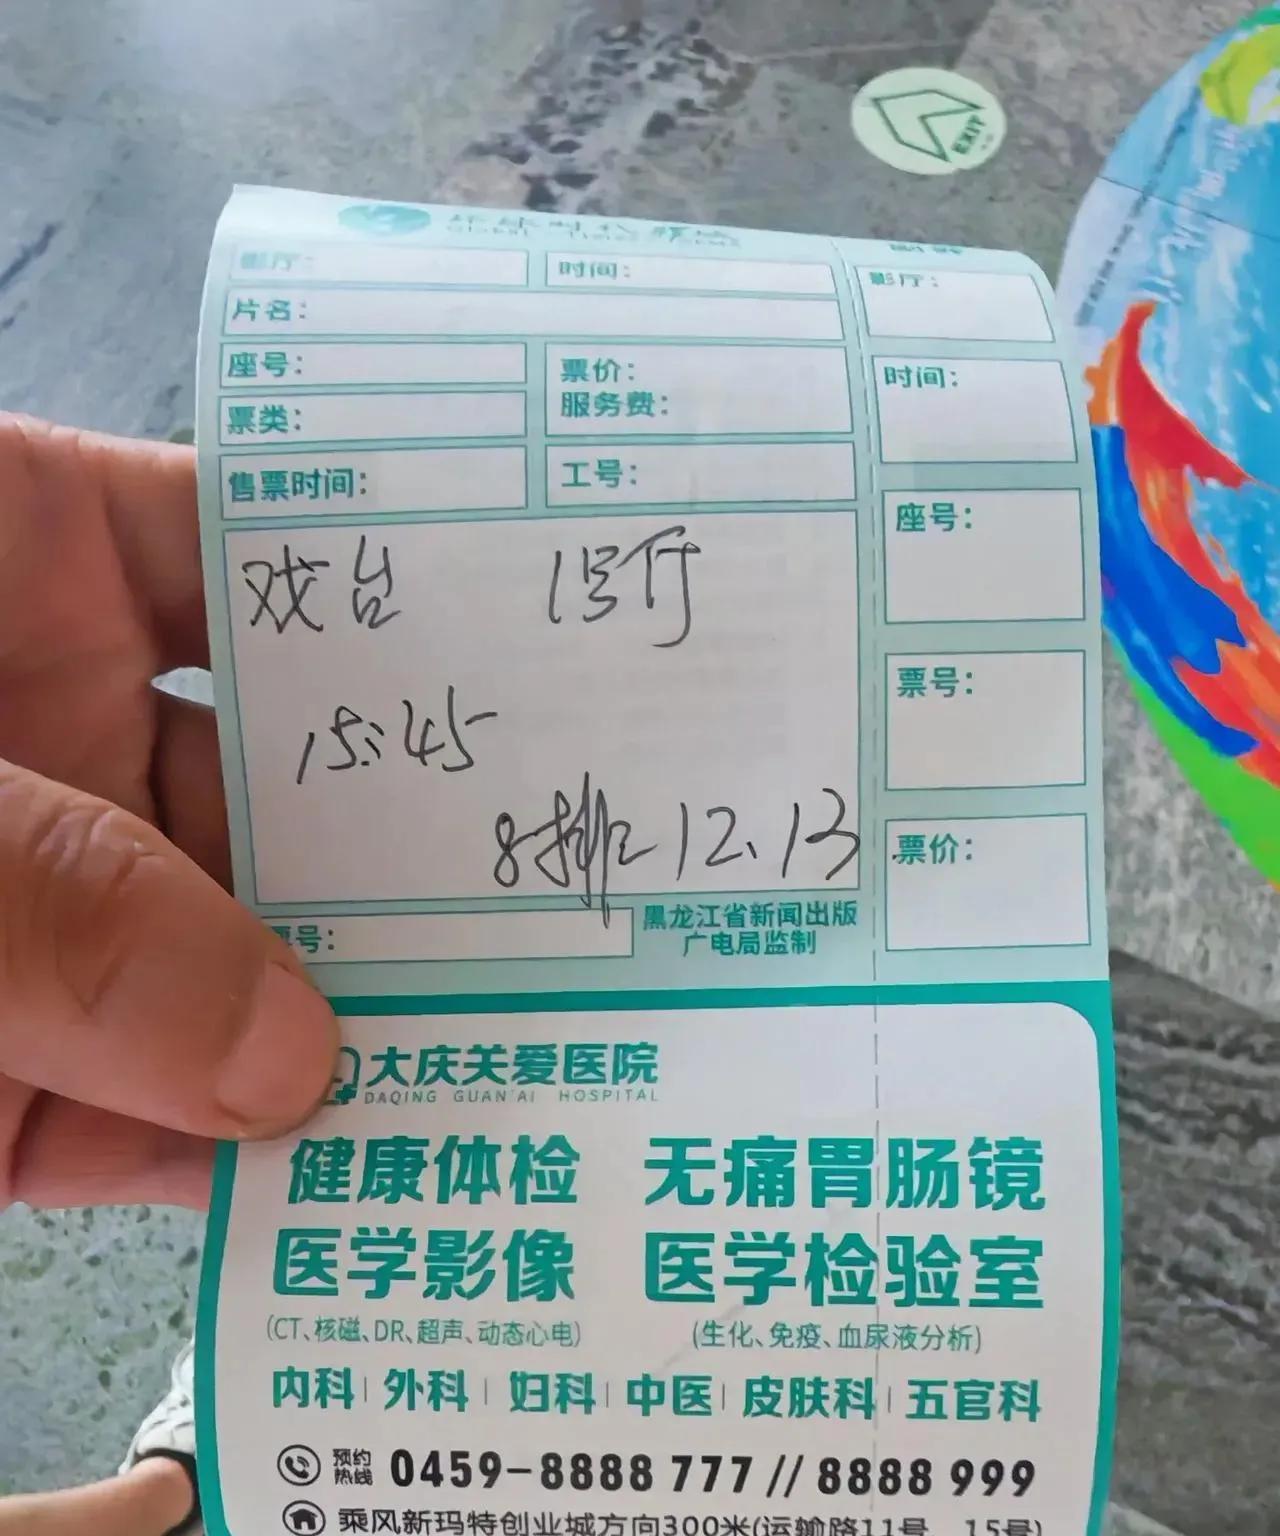 EXIT
影厅： 时间：
片名：
座号： 票价：
票类： 服务费：
售票时间： 工号：
戏台 1号厅
15:45
8排12、13
票号：
黑龙江省新闻出版
广电局监制
影厅：
时间：
座号：
票号：
票价：
大庆关爱医院
DAQING GUAN'AI HOSPITAL
健康体检 无痛胃肠镜
医学影像 医学检验室
(CT、核磁、DR、超声、动态心电) (生化、免疫、血尿液分析)
内科 外科 妇科 中医 皮肤科 五官科
预约
热线 0459-8888 777 // 8888 999
乘风新玛特创业城方向300米(运输路11号、15号)